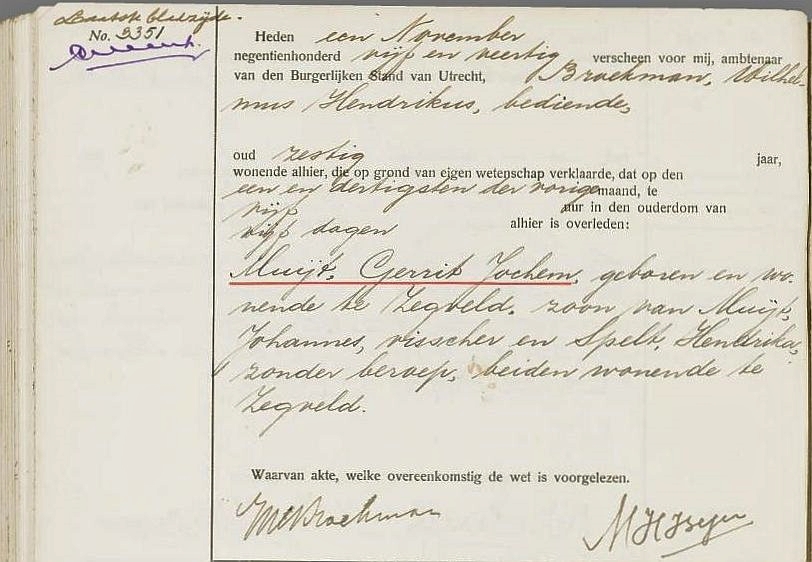 Laatste bladzijde.
No. 3351
Heden een November
negentienhonderd vijf en veertig verscheen voor mij, ambtenaar
van den Burgerlijken Stand van Utrecht, Broekman, Wilhel-
mus Hendrikus, bediende,
oud zestig jaar,
wonende alhier, die op grond van eigen wetenschap verklaarde, dat op den
een en dertigsten der vorige maand, te
vijf uur in den ouderdom van
vijf dagen alhier is overleden:
Muijt, Gerrit Jochem, geboren en wo-
nende te Zegveld, zoon van Muijt,
Johannes, visscher en Spelt, Hendrika,
zonder beroep, beiden wonende te
Zegveld.
Waarvan akte, welke overeenkomstig de wet is voorgelezen.
WHBroekman